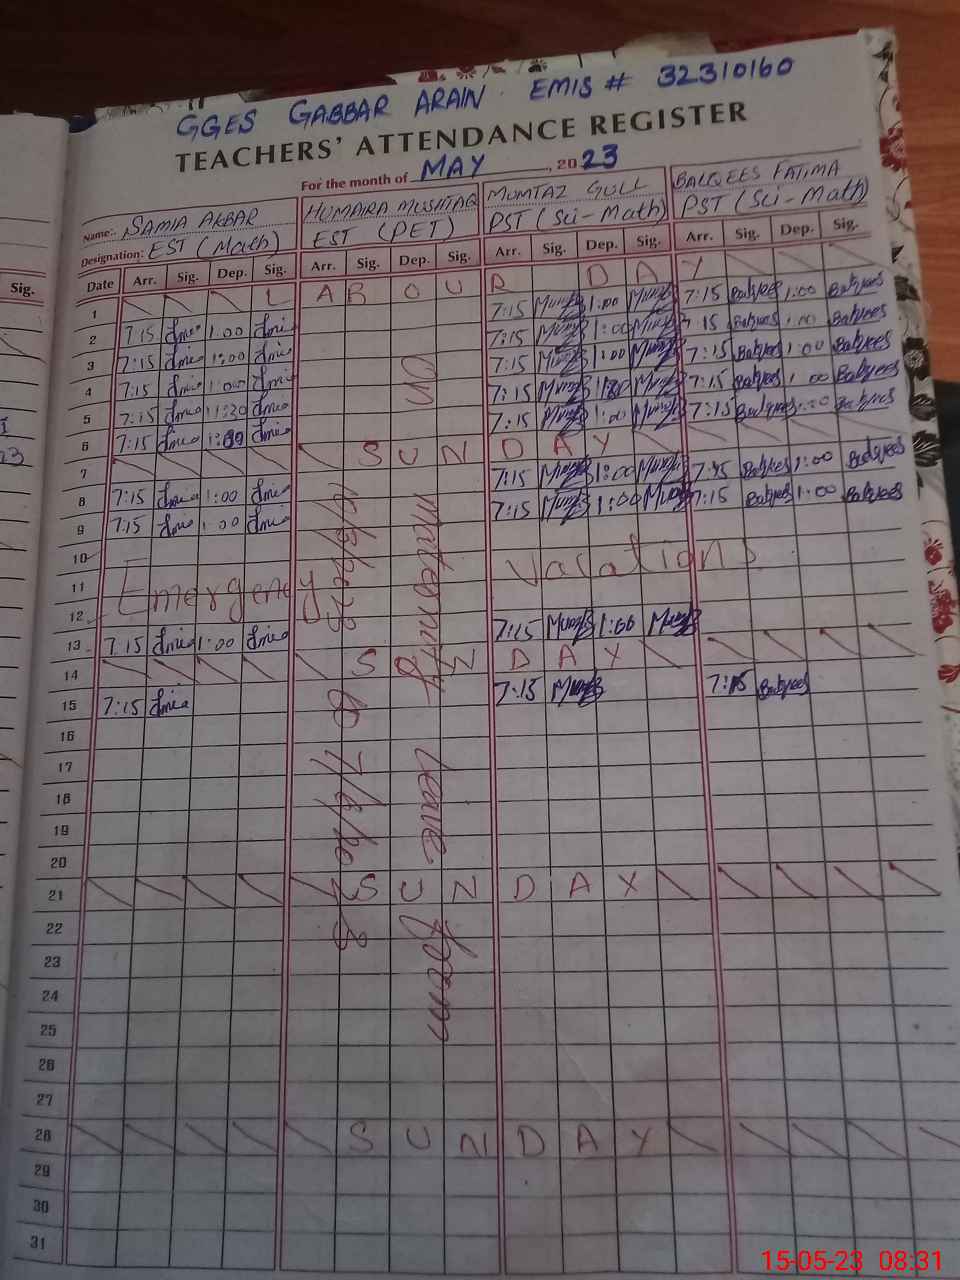 GGES GABBAR ARAIN. EMIS # 32310160
TEACHERS' ATTENDANCE REGISTER
For the month of MAY, 2023
Name:. SAMIA AKBAR HUMAIRA MUSHTAQ MUMTAZ GULL BALQEES FATIMA
Designation: EST (Math) EST (PET) PST (Sci-Math) PST (Sci-Math)
Sig. Date Arr. Sig. Dep. Sig. Arr. Sig. Dep. Sig. Arr. Sig. Dep. Sig. Arr. Sig. Dep. Sig.
1 LABOUR DAY
2 7:15 1:00 7:15 1:00 7:15 Balqees 1:00 Balqees
3 7:15 1:00 7:15 1:00 7:15 Balqees 1:00 Balqees
4 7:15 1:00 7:15 1:00 7:15 Balqees 1:00 Balqees
5 7:15 11:30 7:15 7:15 Balqees 1:00 Balqees
6 7:15 1:00 7:15 1:00 7:15 Balqees Balqees
7 SUNDAY
8 7:15 1:00 7:15 1:00 7:15 Balqees 1:00 Balqees
9 7:15 1:00 7:15 1:00 7:15 Balqees 1:00 Balqees
10
11 Emergency Vacations
12
13 7:15 1:00 7:15 1:00
14 SUNDAY
15 7:15 7:15 7:15 Balqees
16
17
18
19
20
21 SUNDAY
22
23
24
25
26
27
28 SUNDAY
29
30
31
On maternity leave from
to
15-05-23 08:31